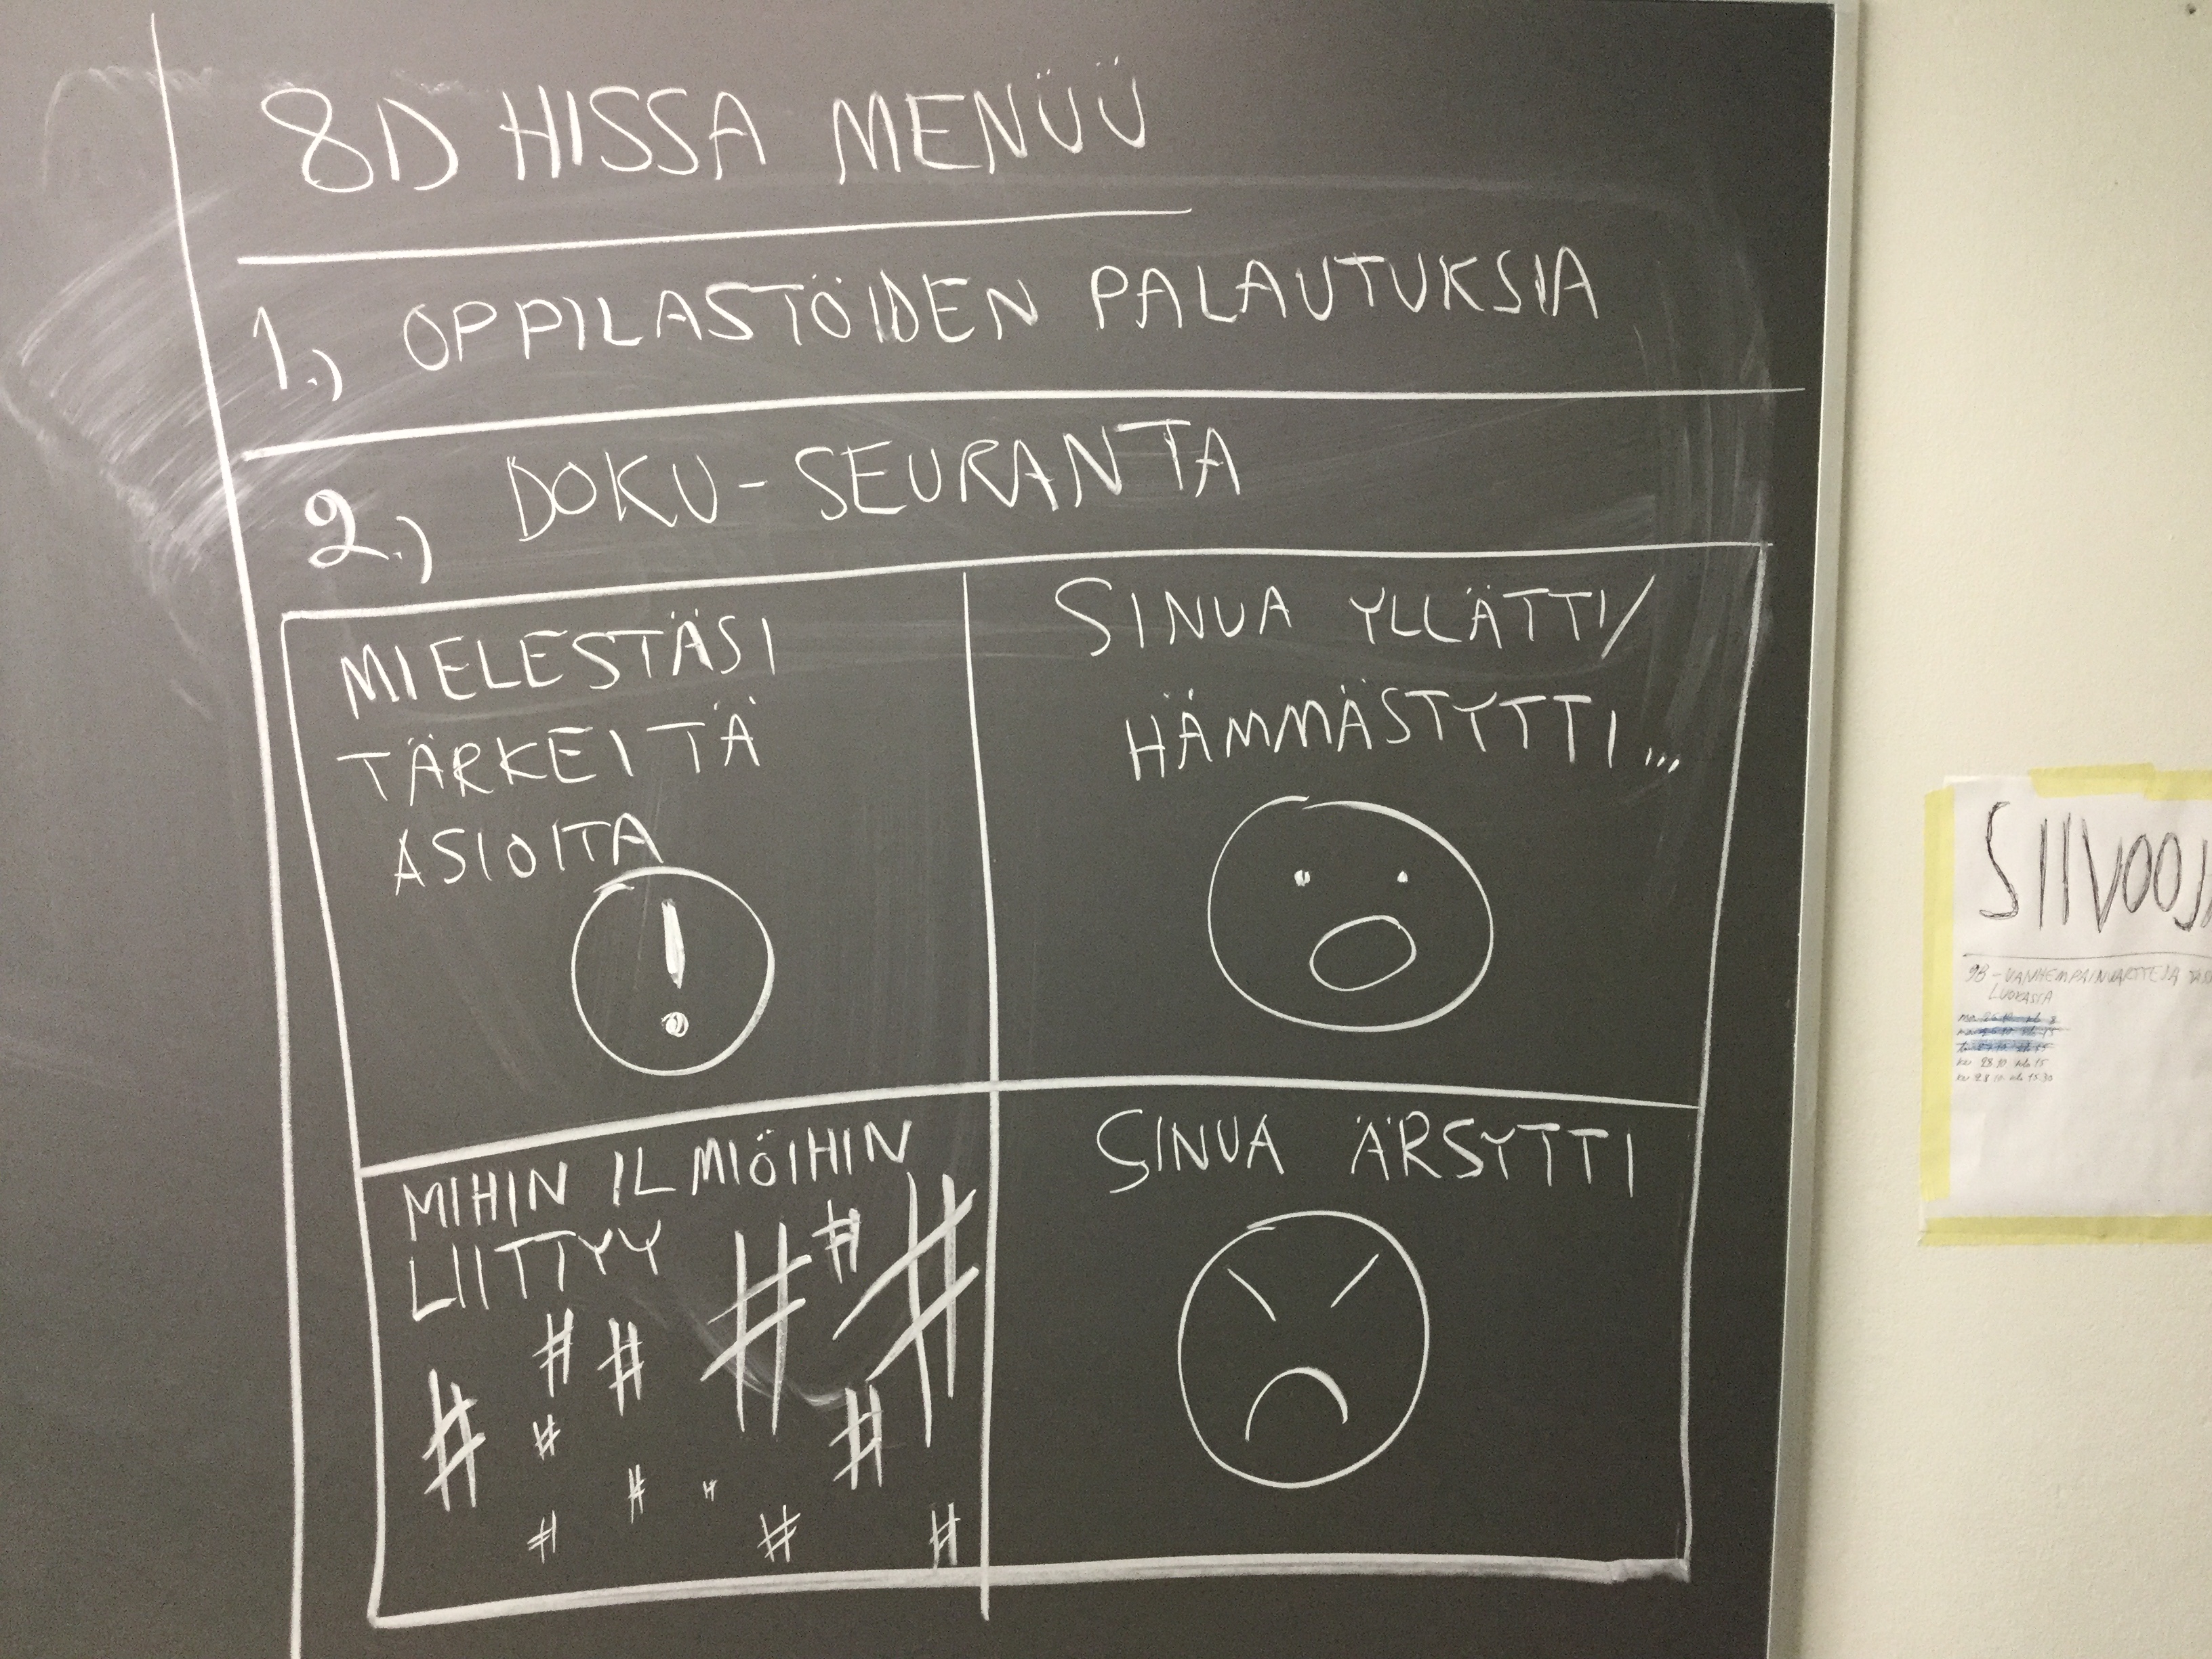 8D HISSA MENÜÜ
1.) OPPILASTÖIDEN PALAUTUKSIA
2.) DOKU-SEURANTA
MIELESTÄSI
TÄRKEITÄ
ASIOITA
!
SINUA YLLÄTTI/
HÄMMÄSTYTTI...
MIHIN ILMIÖIHIN
LIITTYY
# # # # # # # # # # # #
SINUA ÄRSYTTI
SIIVOOJ
9B - VANHEMPAINVARTTEJA
LUOKASSA
ke 28.10 klo 15
ke 28.10 klo 15.30